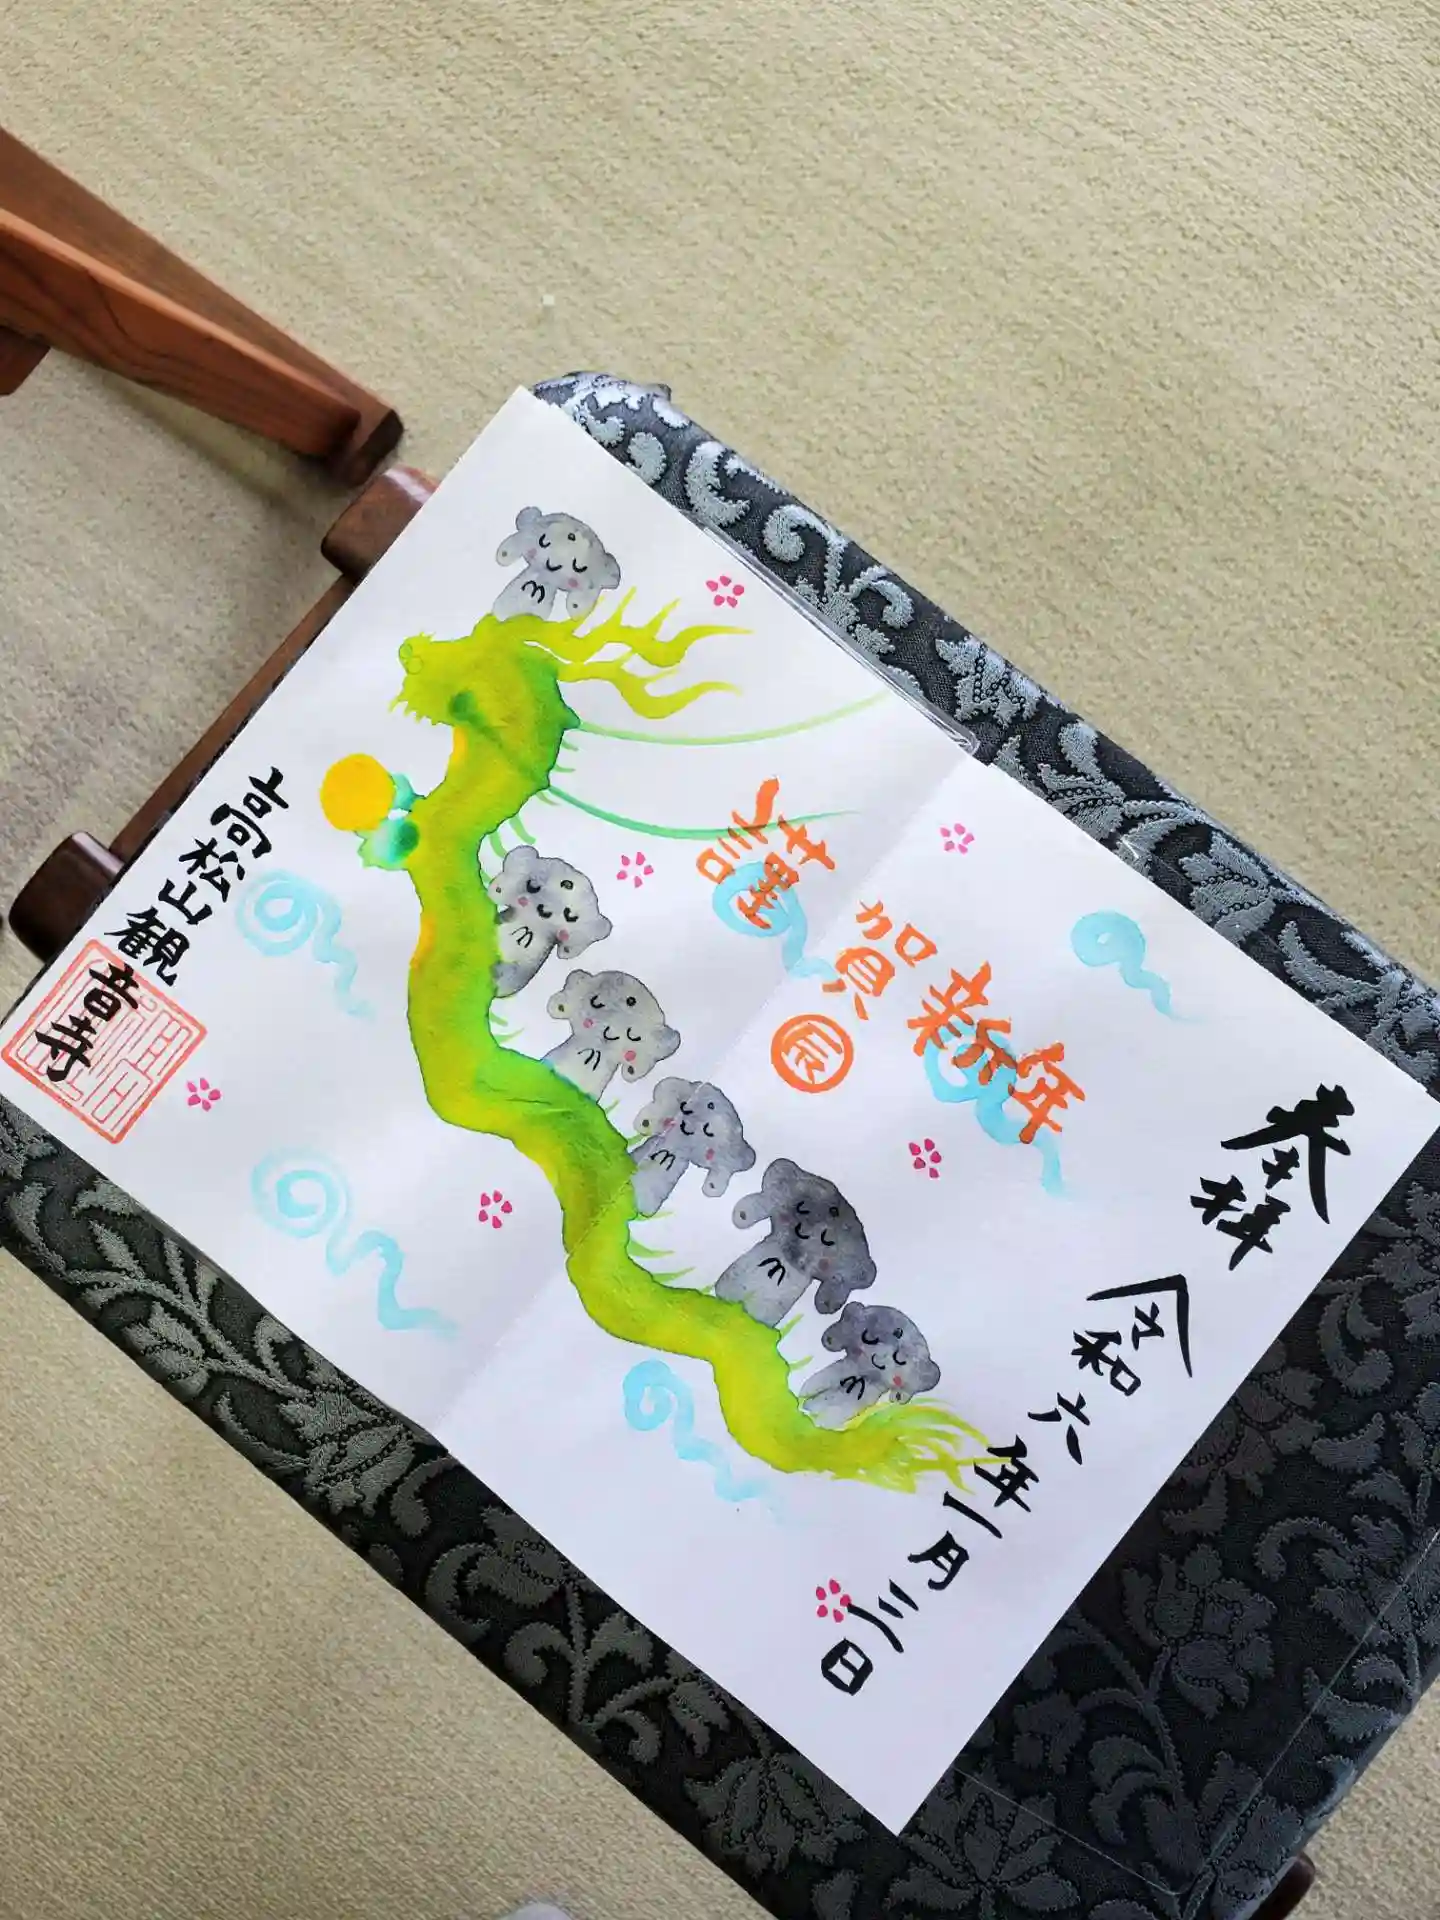 奉拝
令和六年一月三日
謹賀新年
辰
高松山観音寺